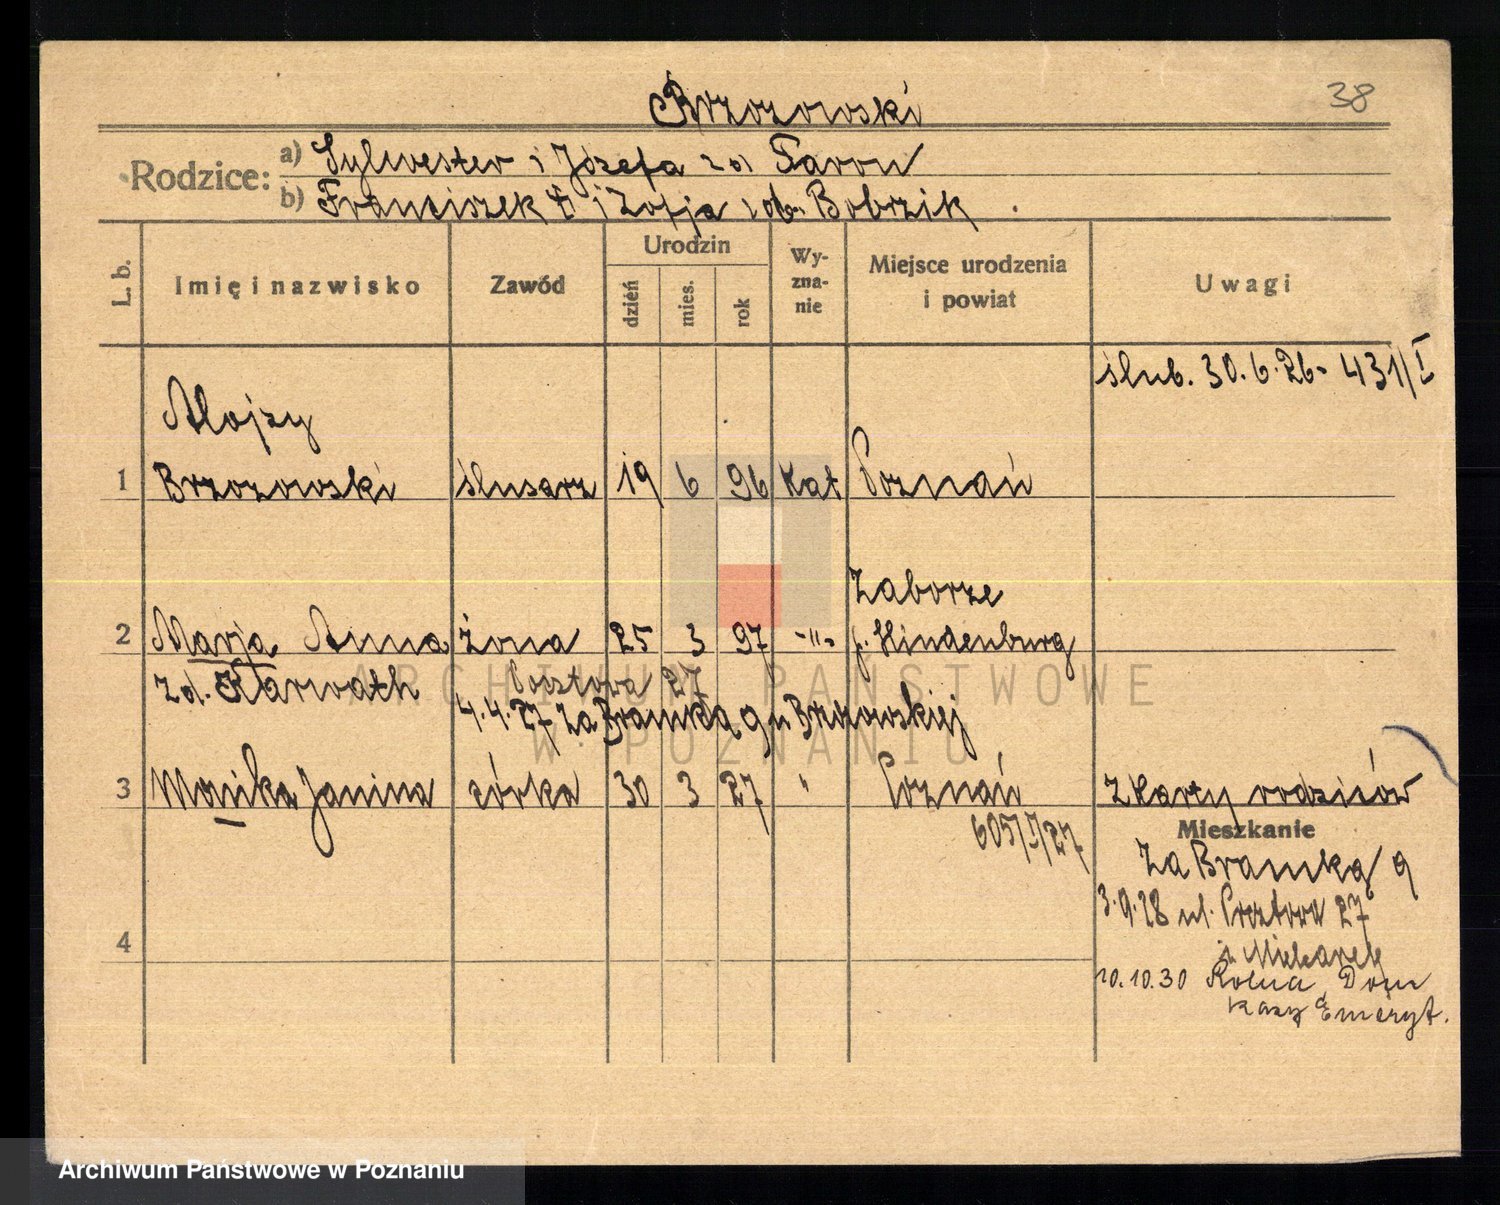 Brzozowski
38
Rodzice: a) Sylwester i Józefa zd Taron
b) Franciszek † i Zofja zd. Bobrzik
L. b. Imię i nazwisko Zawód Urodzin Wy-zna-nie Miejsce urodzenia i powiat Uwagi
dzień mies. rok
ślub. 30.6.26- 431/I
Alojzy
1 Brzozowski ślusarz 19 6 96 Kat Poznań
Zaborze
2 Marja Anna żona 25 3 97 -"- p. Hindenburg
zd. Karwath Pocztowa 27
4.4.27 Za Bramką 9 u Brzozowskiej
3 Monika Janina córka 30 3 27 " Poznań z karty rodziców
605/I/27
Mieszkanie
Za Bramką 9
3.9.28 ul. Pocztowa 27
4
10.10.30 Rolna, Dom
Kasy Emeryt.
ARCHIWUM PAŃSTWOWE
W POZNANIU
Archiwum Państwowe w Poznaniu